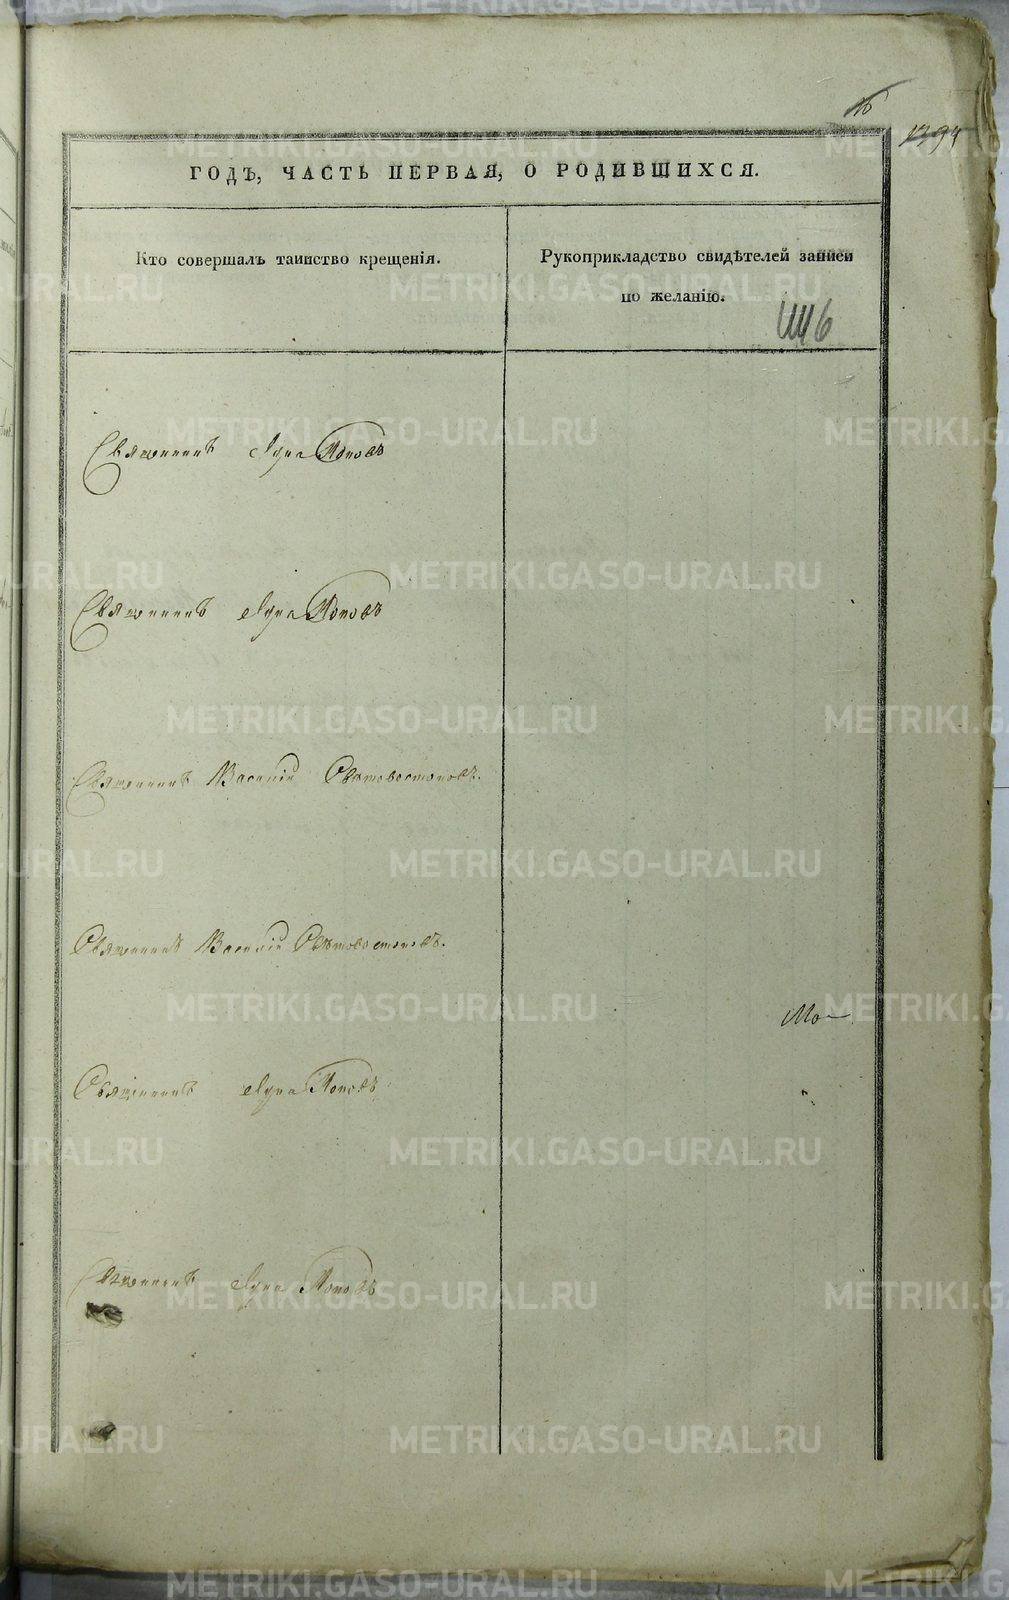 ГОДЪ, ЧАСТЬ ПЕРВАЯ, О РОДИВШИХСЯ.
Кто совершалъ таинство крещенія.
Рукоприкладство свидѣтелей записи
по желанію.
Священникъ Поповъ
Священникъ Поповъ
Священникъ Василій Свѣтовостоковъ.
Священникъ Василій Свѣтовостоковъ.
Священникъ Поповъ
Священникъ Поповъ
METRIKI.GASO-URAL.RU